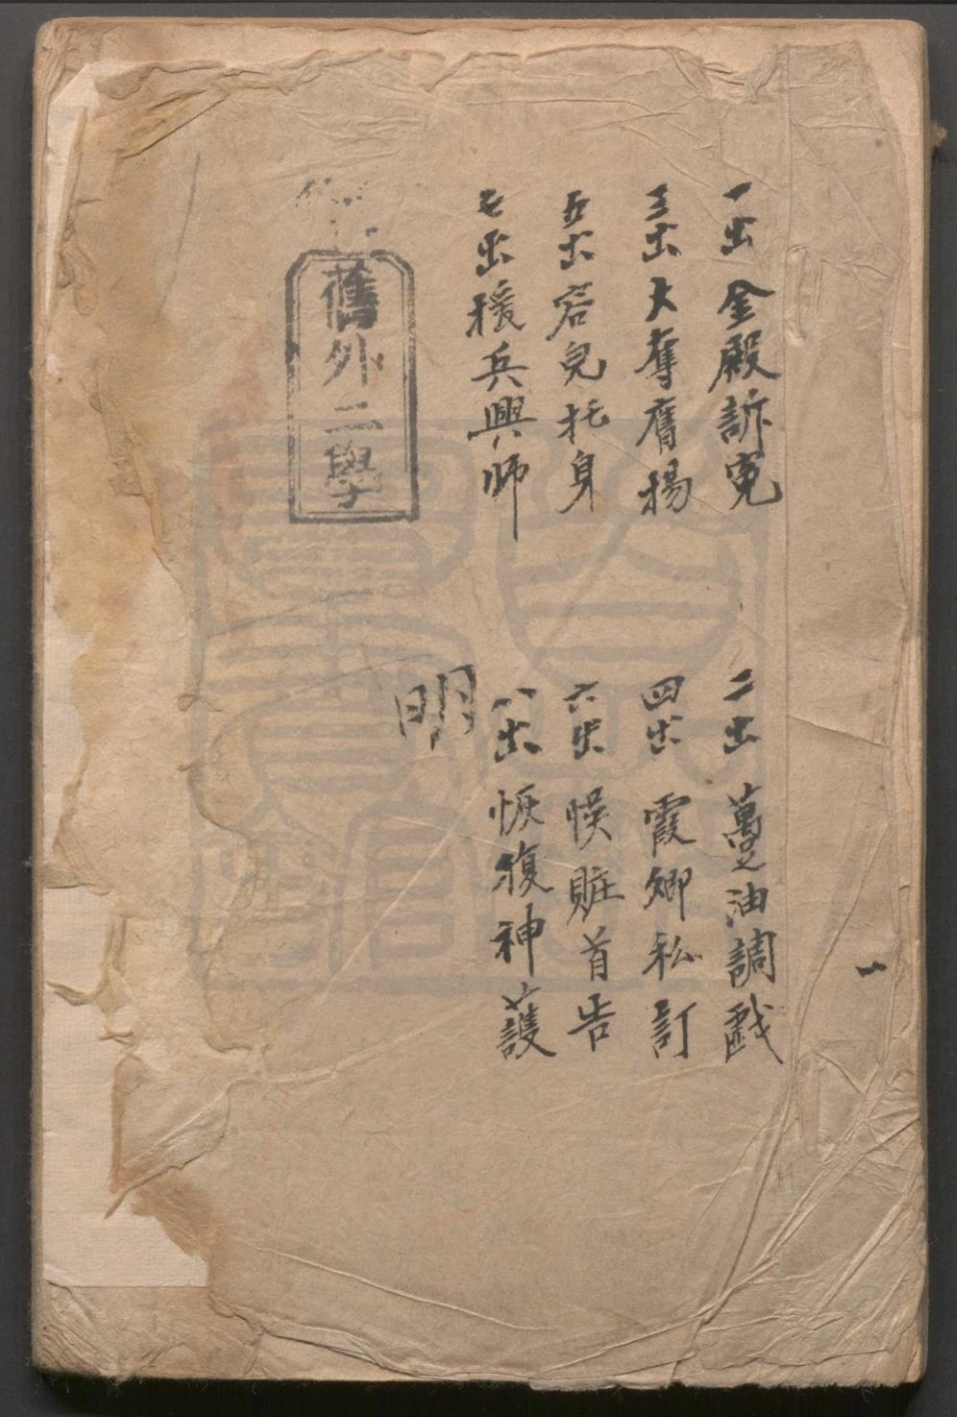 一出 金殿訴寃
二出 萬芝油調戲
三出 大奪鷹揚
四出 霞卿私訂
五出 容兒托身
六出 悞賍首告
七出 援兵興師
八出 恢復神護
明
舊外二學